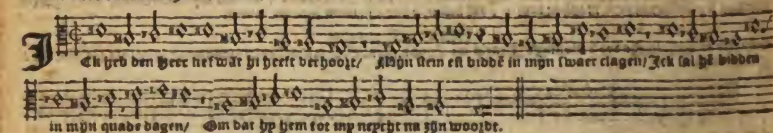 ICk heb den Heer lief wāt hi heeft verhoort/ Mijn stem eñ biddē in mijn swaer clagen/ Ick sal hē bidden
in mijn quade dagen/ Om dat hy hem tot my neycht na zijn woordt.